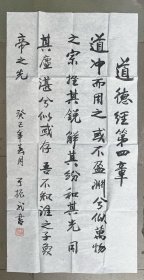 道德经第四章
道冲而用之或不盈渊兮似万物
之宗挫其锐解其纷和其光同
其尘湛兮似或存吾不知谁之子象
帝之先
癸巳年春月